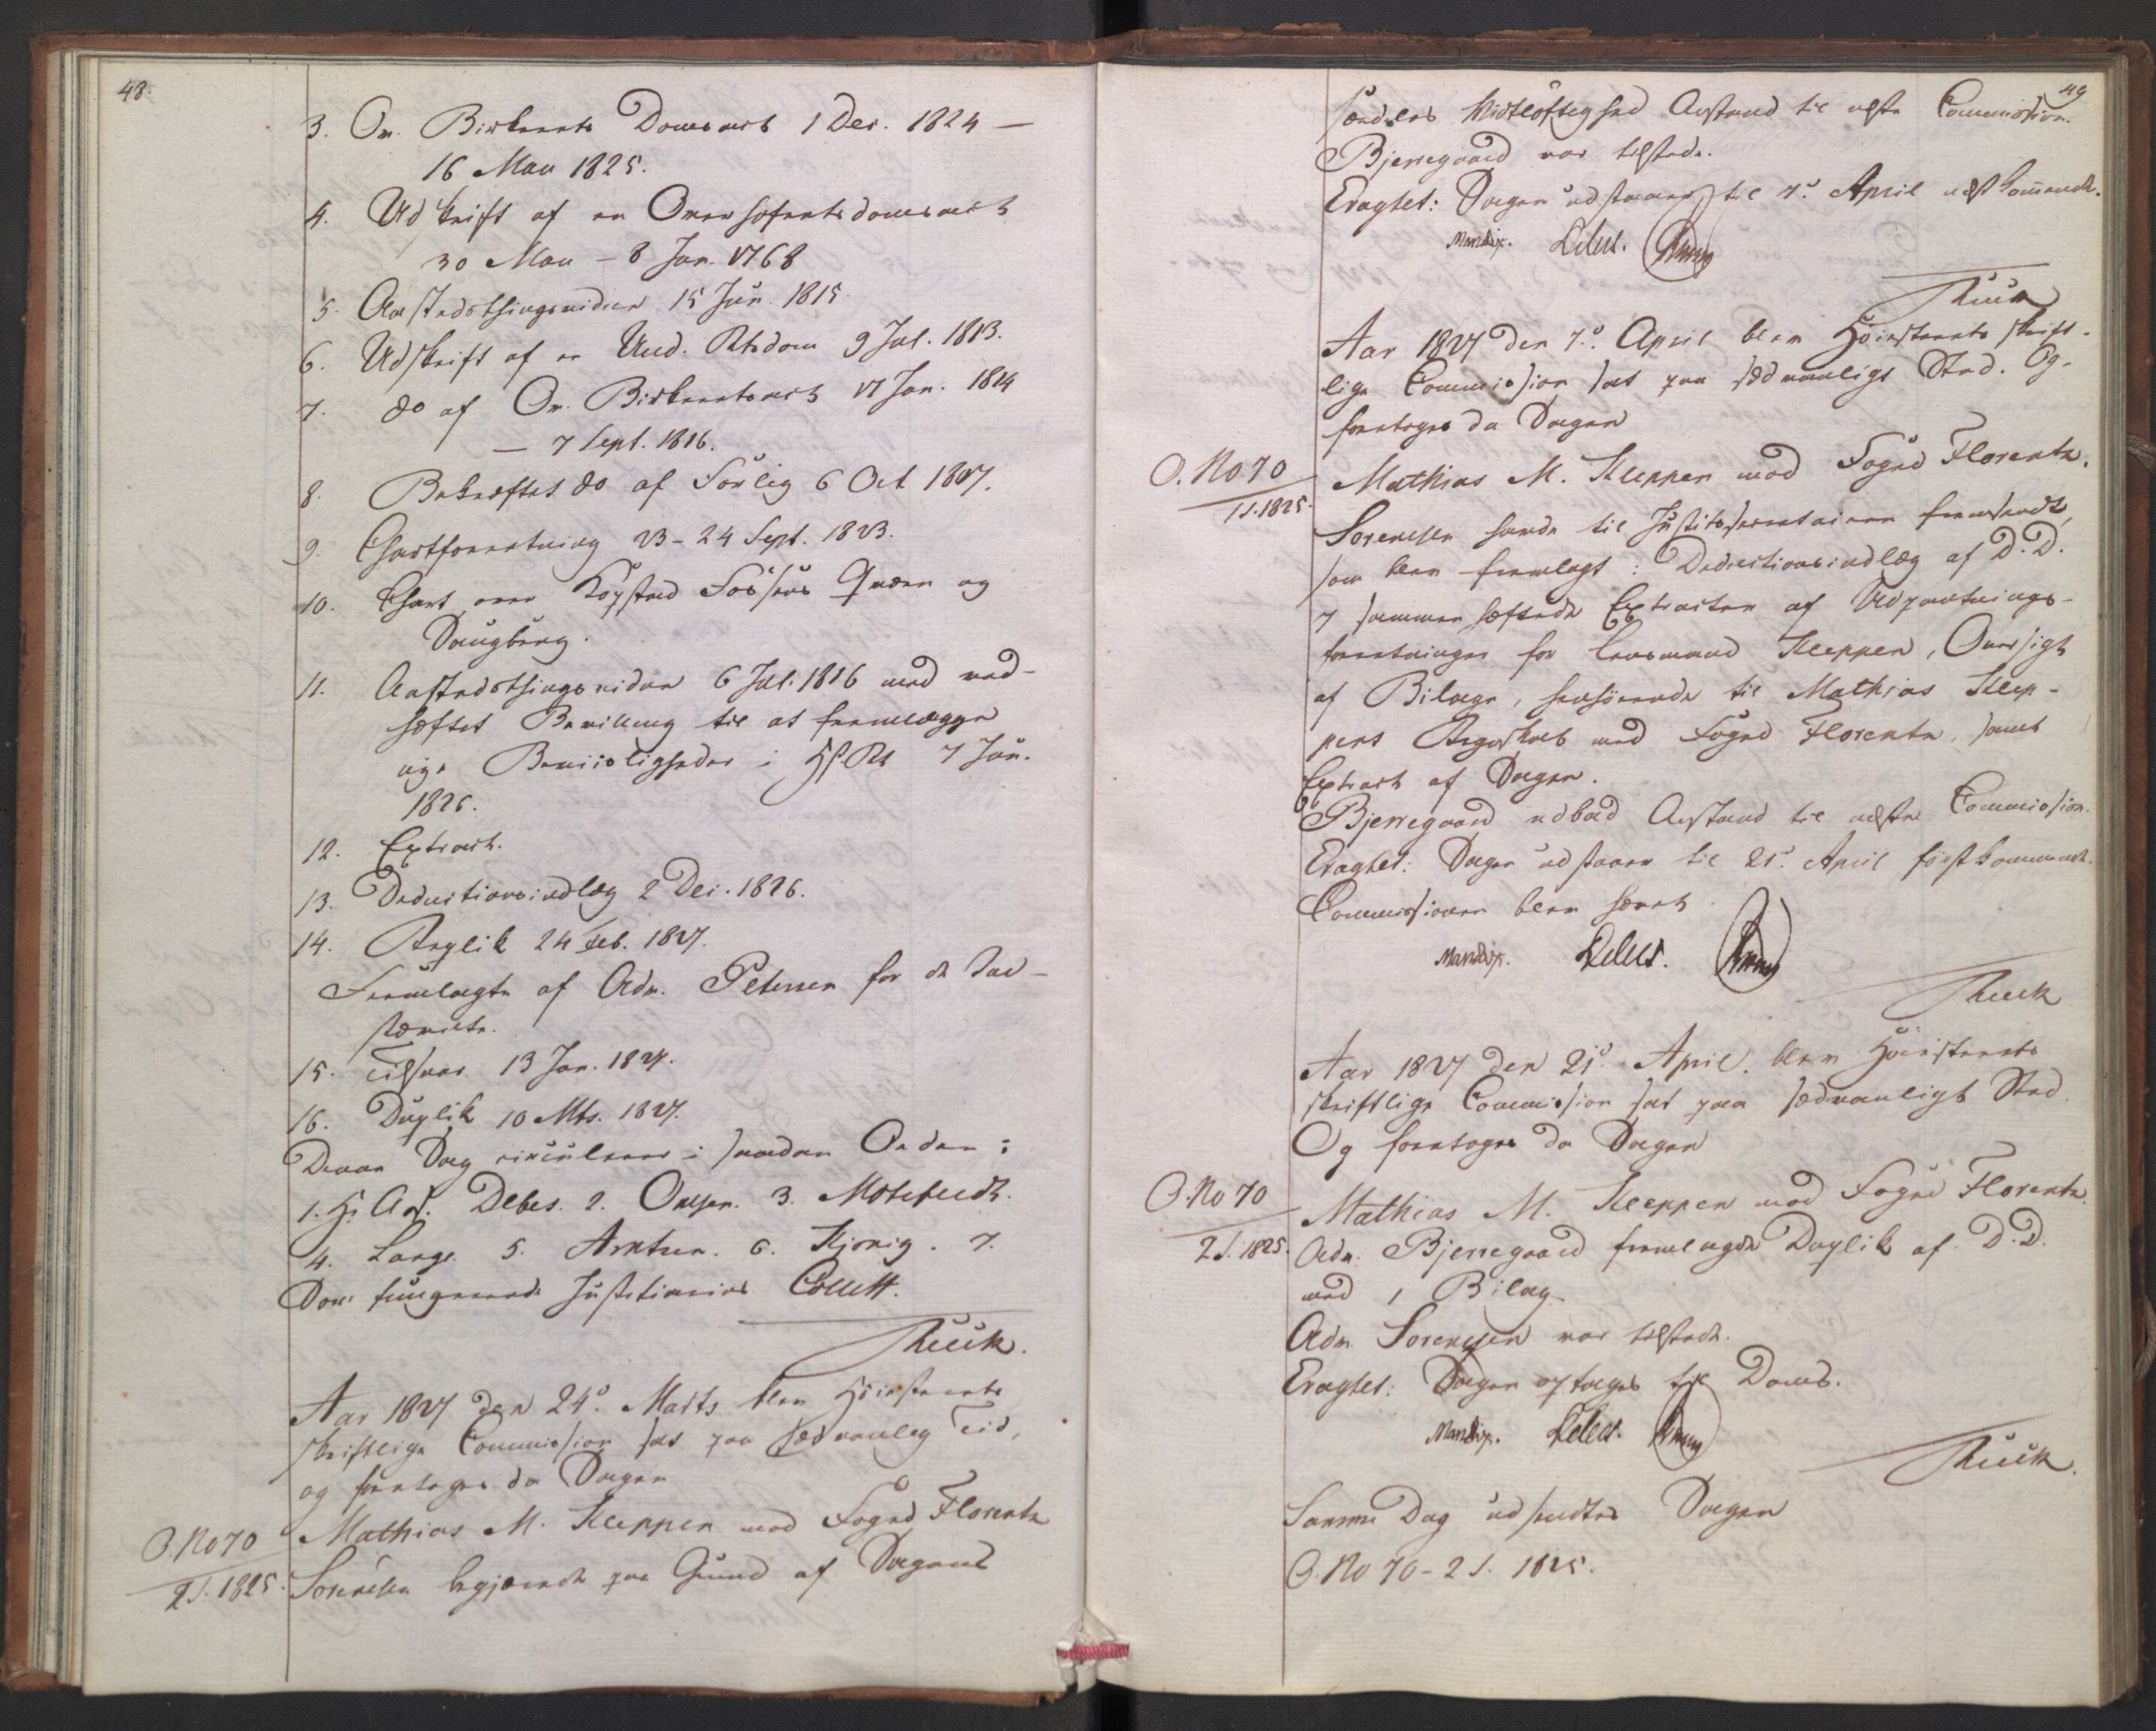 48.
3. Ov. Birkerets Domsact 1 Dec. 1824 –
16 Mau 1825.
4. Udskrift af en Overhofretsdomsact
30 Mau – 8 Jan. 1768
5. Aastedsthingsvidne 15 Jun. 1815.
6. Udskrift af en Und. Rtsdom 9 Jul. 1813.
7. do af Ov. Birkeretsact 17 Jan. 1814
– 7 Sept. 1816.
8. Bekræftet do af Forlig 6 Oct 1807.
9. Chartforretning 23 – 24 Sept. 1823.
10. Chart over Kopstad Fossens Qværn og
Daugberg.
11. Aastedsthingsvidne 6 Jul. 1816 med ved-
hæftet Bevilling til at fremlægge
nye Beviisligheder i Hst. Ret 7 Jan.
1826.
12. Extract.
13. Deductionsindlæg 2 Dec. 1826.
14. Replik 24 Feb. 1827.
Fremlagte af Adv. Petersen for de Ind-
stævnte.
15. Tilsvar 13 Jan. 1827.
16. Duplik 10 Mts. 1827.
Denne Sag circulerer i saadan Orden:
1. H. Ass. Debes. 2. Omsen. 3. Motzfeldt.
4. Lange. 5. Arntzen. 6. Hjorig. 7.
Den fungerende Justitiarius Collett.
Ruuk.
Aar 1827 den 24de Marts blev Høiesterets
skriftlige Commission sat paa sædvanlig Tid,
og foretoges da Sagen
O. No 70
2 S. 1825.
Mathias M. Kleppen mod Foged Florentz
Sorenssen begjærede paa Grund af Sagens
49
særdeles Vidtløftighed Anstand til næste Commission.
Bjerregaard var tilstede.
Eragtet: Sagen udstaaer til 7de April næstkommende.
Mandix. Debes.
Ruuk
Aar 1827 den 7de April blev Høiesterets skrift-
lige Commission sat paa sædvanligt Sted. Og
foretoges da Sagen
O. No 70
2 S. 1825.
Mathias M. Kleppen mod Foged Florentz.
Sorenssen havde til Justitssecretairen fremsendt,
som blev fremlagt: Deductionsindlæg af D. D.
7 sammenhæftede Extracter af Udpantnings-
forretninger for Lensmand Kleppen, Oversigt
af Bilage, henhørende til Mathias Klep-
pens Regnskab med Foged Florentz, samt
Extract af Sagen.
Bjerregaard udbad Anstand til næste Commission.
Eragtet: Sagen udstaaer til 21de April førstkommende.
Commissionen blev hævet.
Mandix. Debes.
Ruuk
Aar 1827 den 21de April blev Høiesterets
skriftlige Commission sat paa sædvanligt Sted.
Og foretoges da Sagen
O. No 70
2 S. 1825.
Mathias M. Kleppen mod Foged Florentz.
Adv. Bjerregaard fremlagde Duplik af D. D.
med 1 Bilag.
Adv. Sorenssen var tilstede.
Eragtet: Sagen optages til Doms.
Mandix. Debes.
Ruuk.
Samme Dag udsendtes Sagen
O. No 70 – 2 S. 1825.